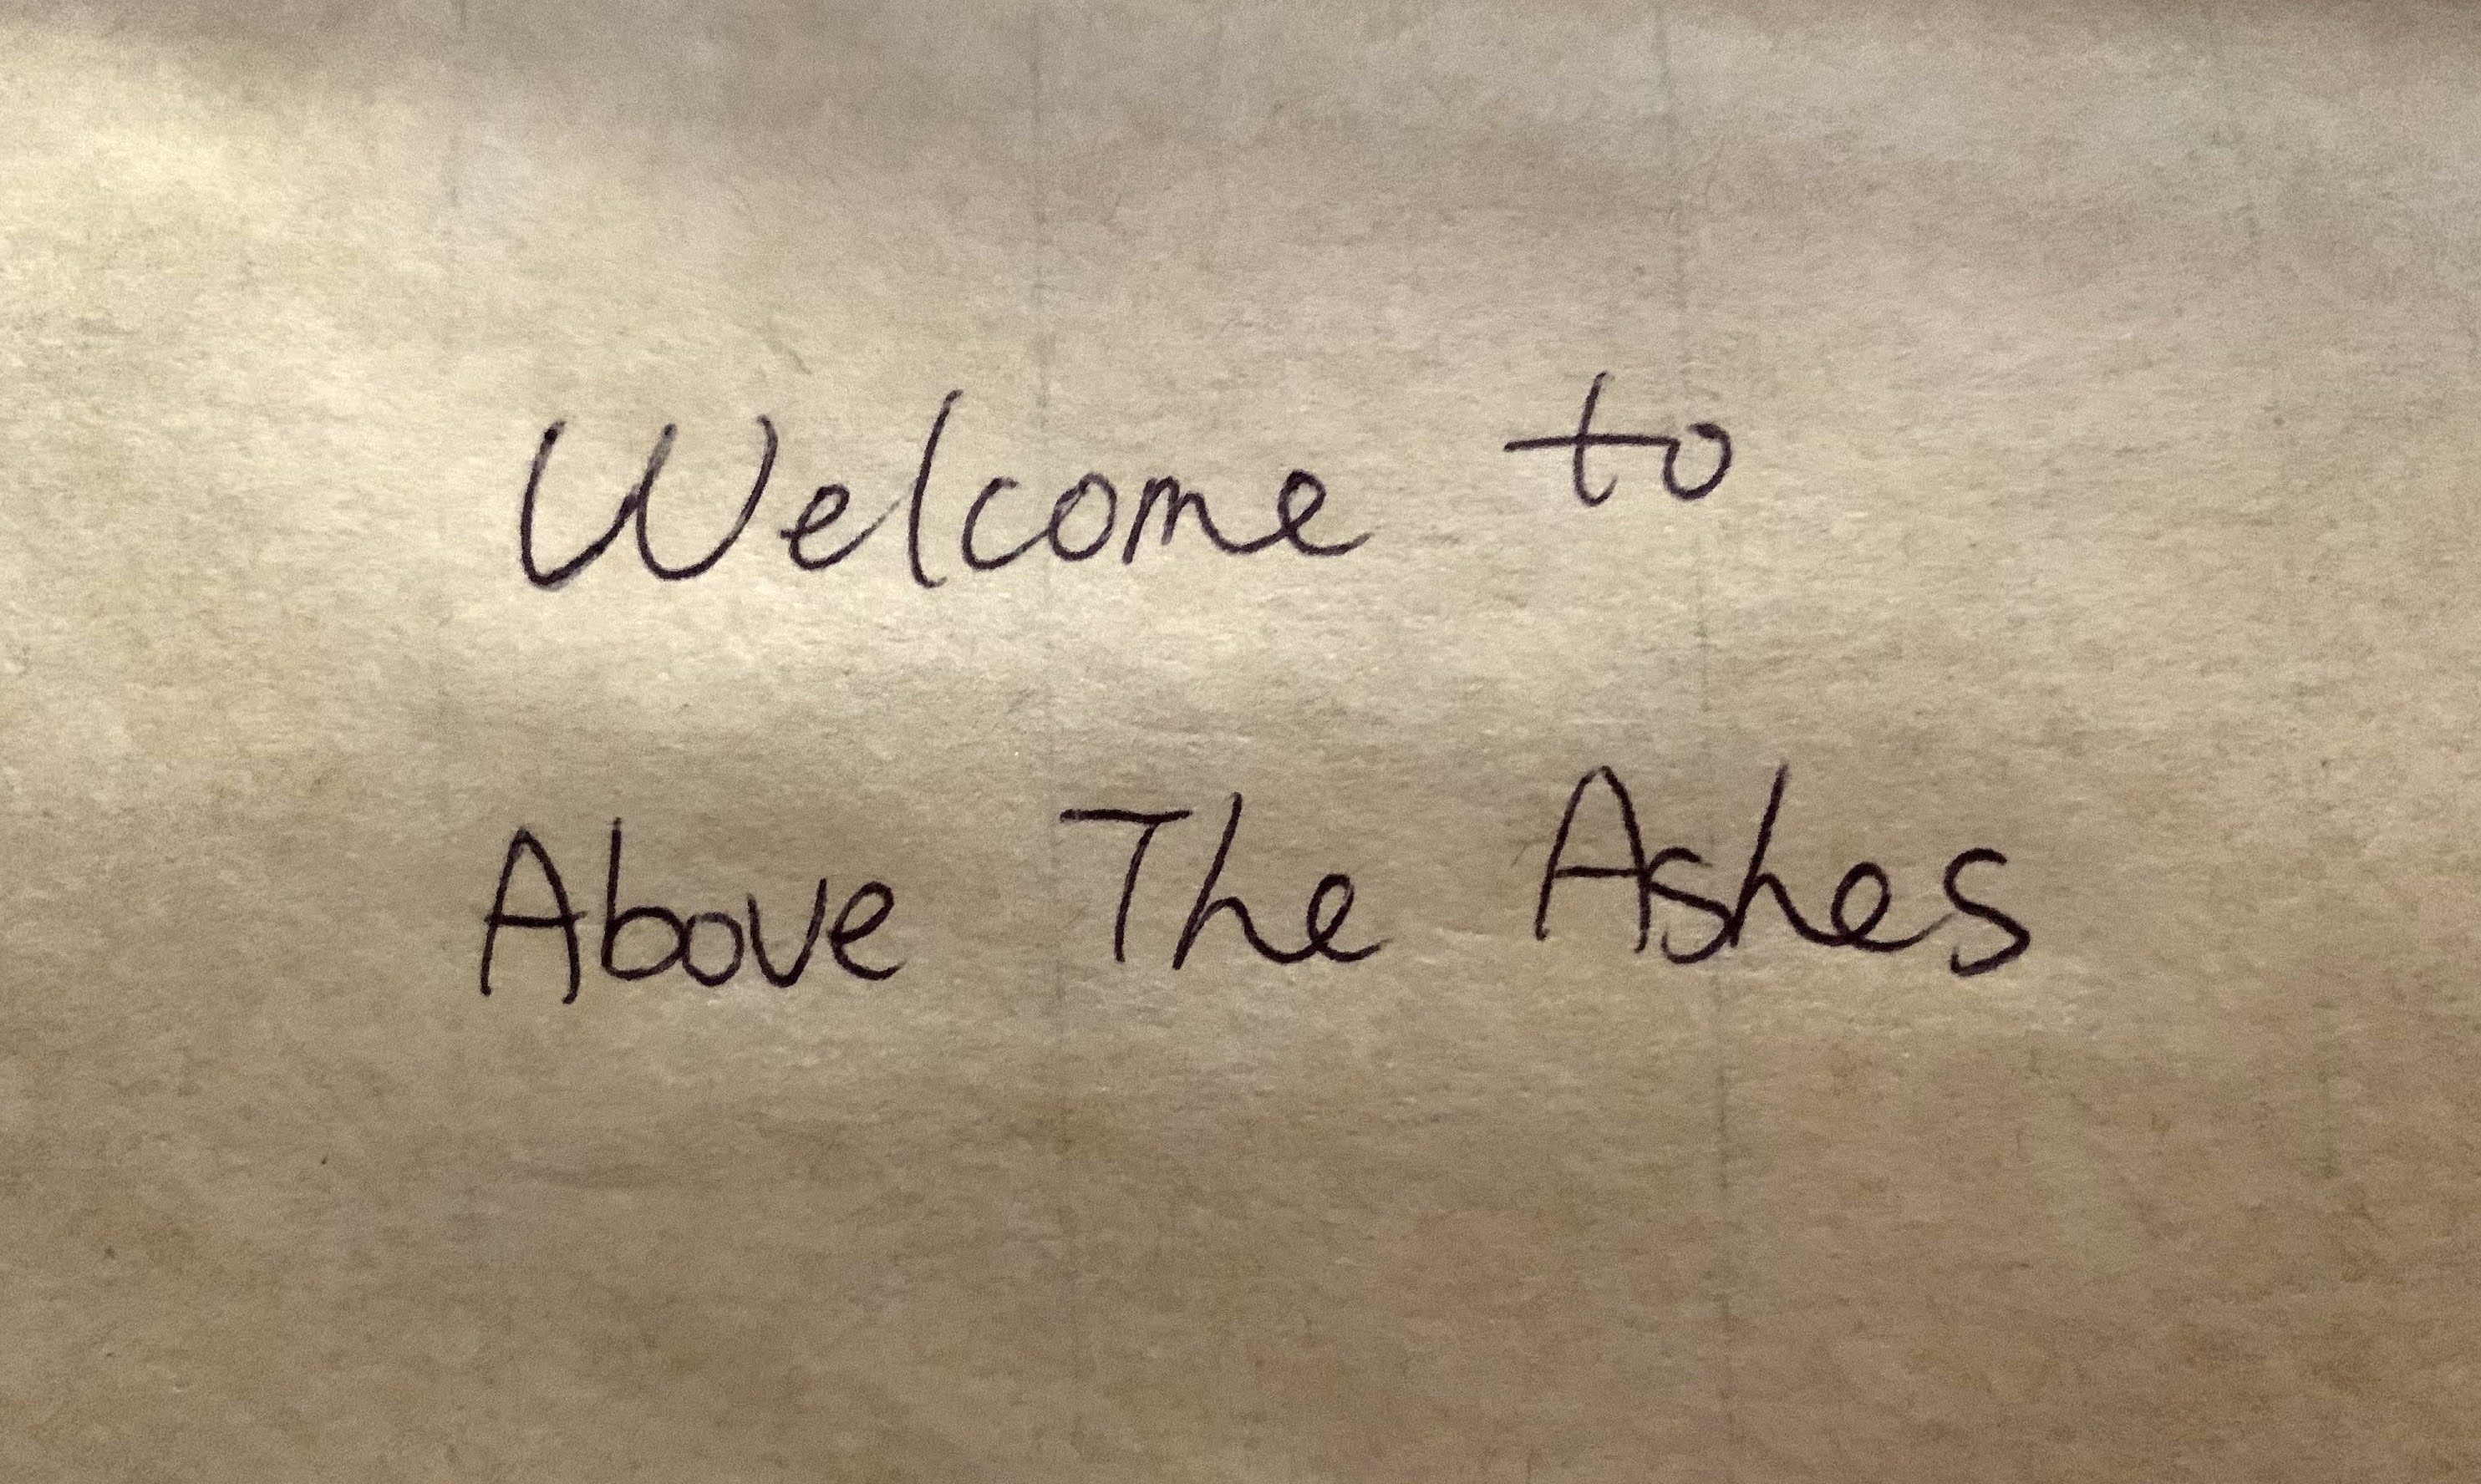 Welcome to
Above The Ashes